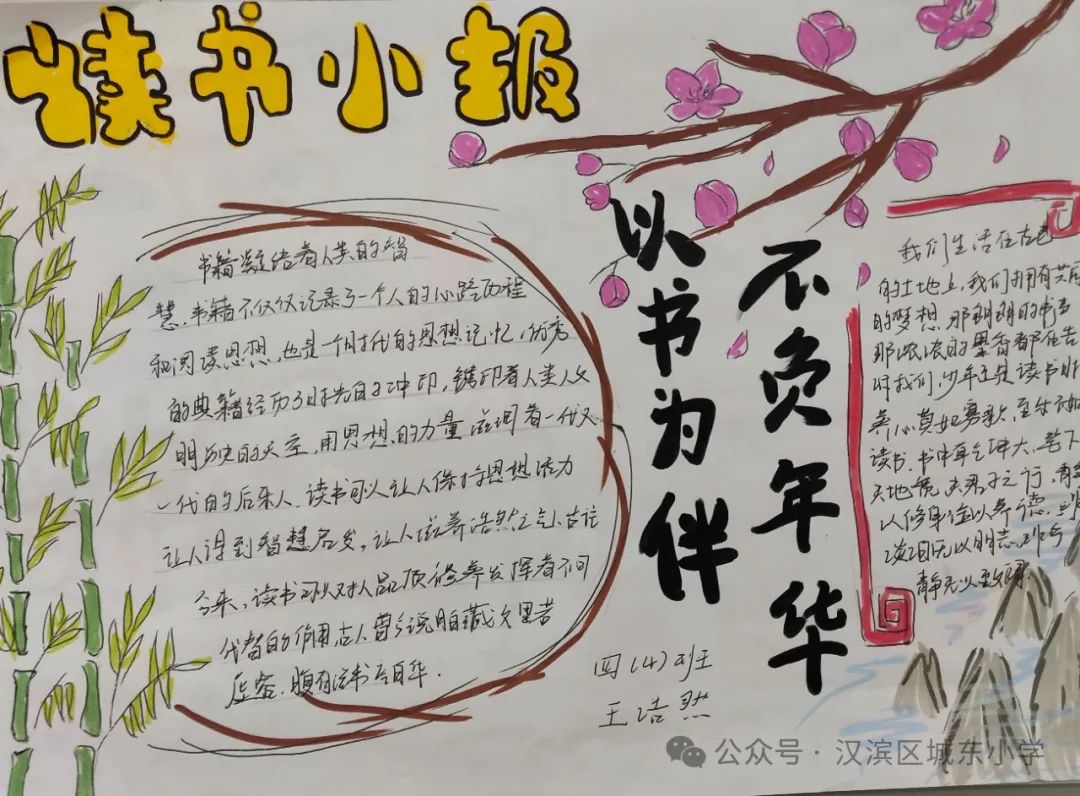 读书小报
以书为伴
不负年华
书籍凝结着人类的智
慧,书籍不仅仅记录了一个人的心路历程
和阅读思想,也是一个时代的思想记忆,优秀
的典籍经历了时光的冲印,镌印着人类人文
明历史的天空,用思想的力量滋润着一代又
一代的后来人.读书可以让人保持思想活力
让人得到智慧启发,让人滋养浩然之气,古往
今来,读书可以对人品质修养发挥着不同
代替的作用古人曾说胸藏文墨若
虚谷.腹有诗书气自华.
我们生活在古老
的土地上,我们拥有共同
的梦想.那朗朗的书声
那浓浓的墨香都在告
诉我们,少年正是读书时
养心莫如寡欲,至乐无如
读书.书中乾坤大,笔下
天地宽 夫君子之行,静
以修身俭以养德.非
淡泊无以明志,非宁
静无以致远.
四(4)班
王浩然
公众号·汉滨区城东小学